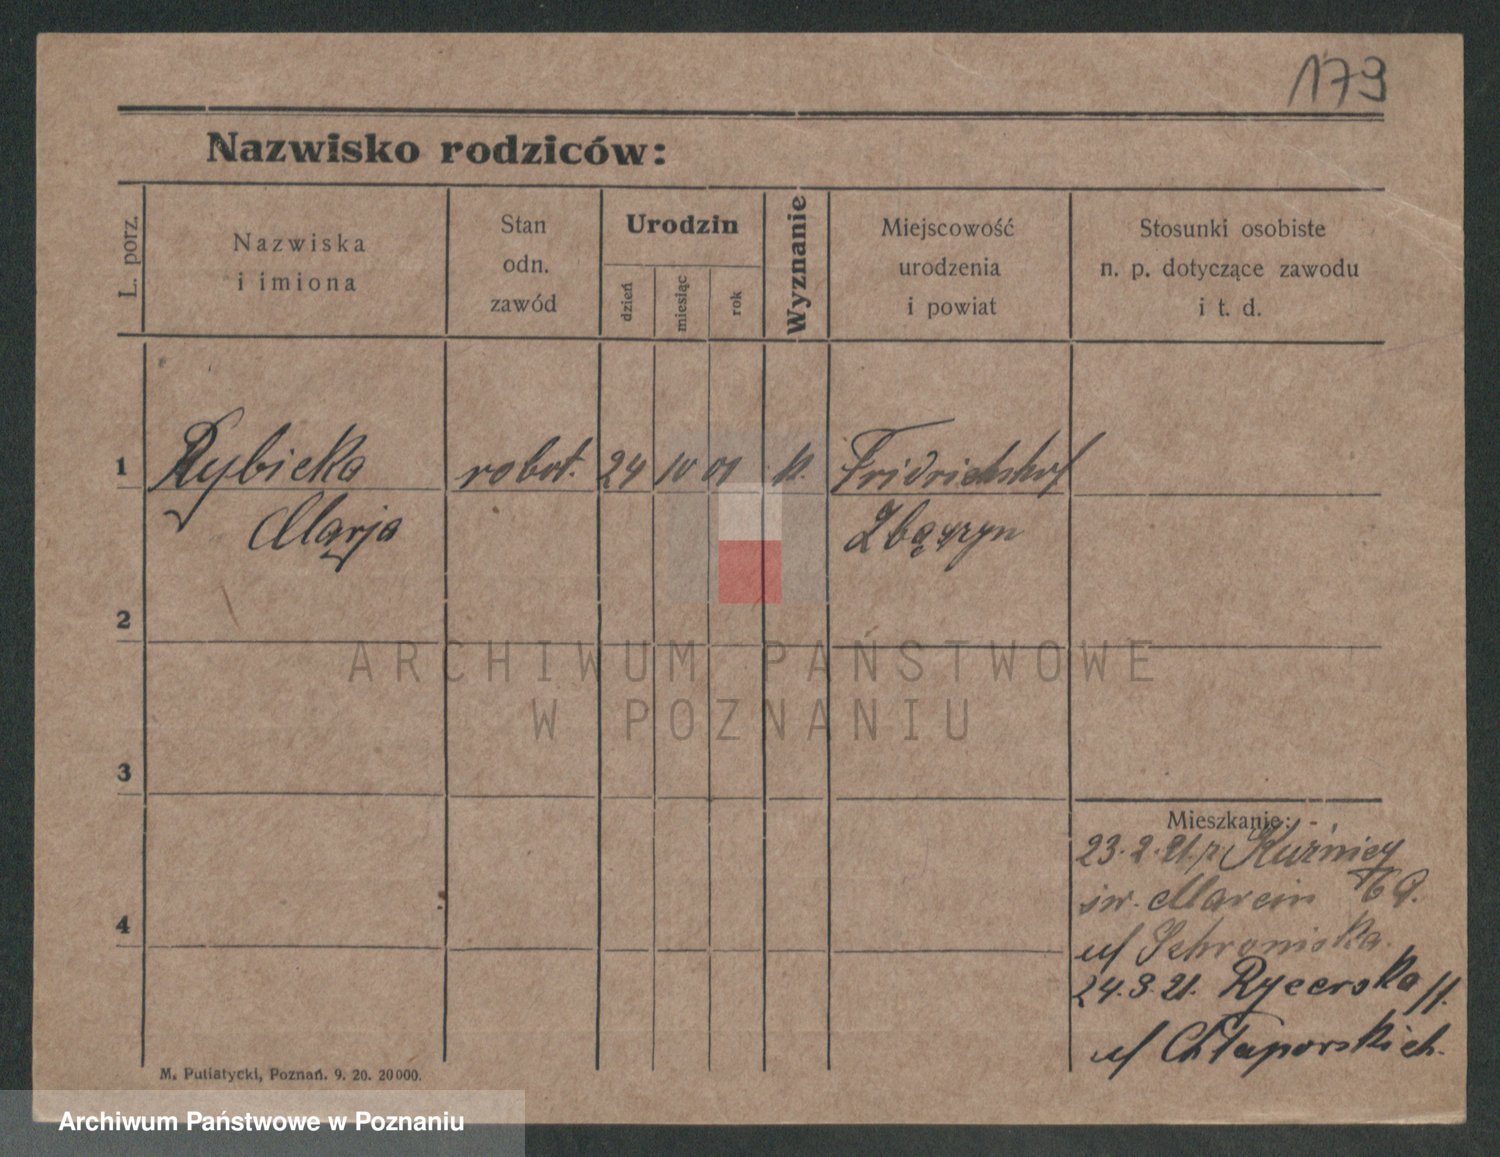 179
Nazwisko rodziców:
L. porz.
Nazwiska
i imiona
Stan
odn.
zawód
Urodzin
dzień
miesiąc
rok
Wyznanie
Miejscowość
urodzenia
i powiat
Stosunki osobiste
n. p. dotyczące zawodu
i t. d.
1 Rybicka robot. 24 10 01 k. Fridrichshof
Marja Zbąszyn
2
ARCHIWUM PAŃSTWOWE
W POZNANIU
3
Mieszkanie: -
23.2.21. Kuźnicy
św. Marcin
u/ Schroniska.
4
24.3.21. Rycerska 11.
u/ Chłaporskich.
M. Putiatycki, Poznań. 9. 20. 20000.
Archiwum Państwowe w Poznaniu